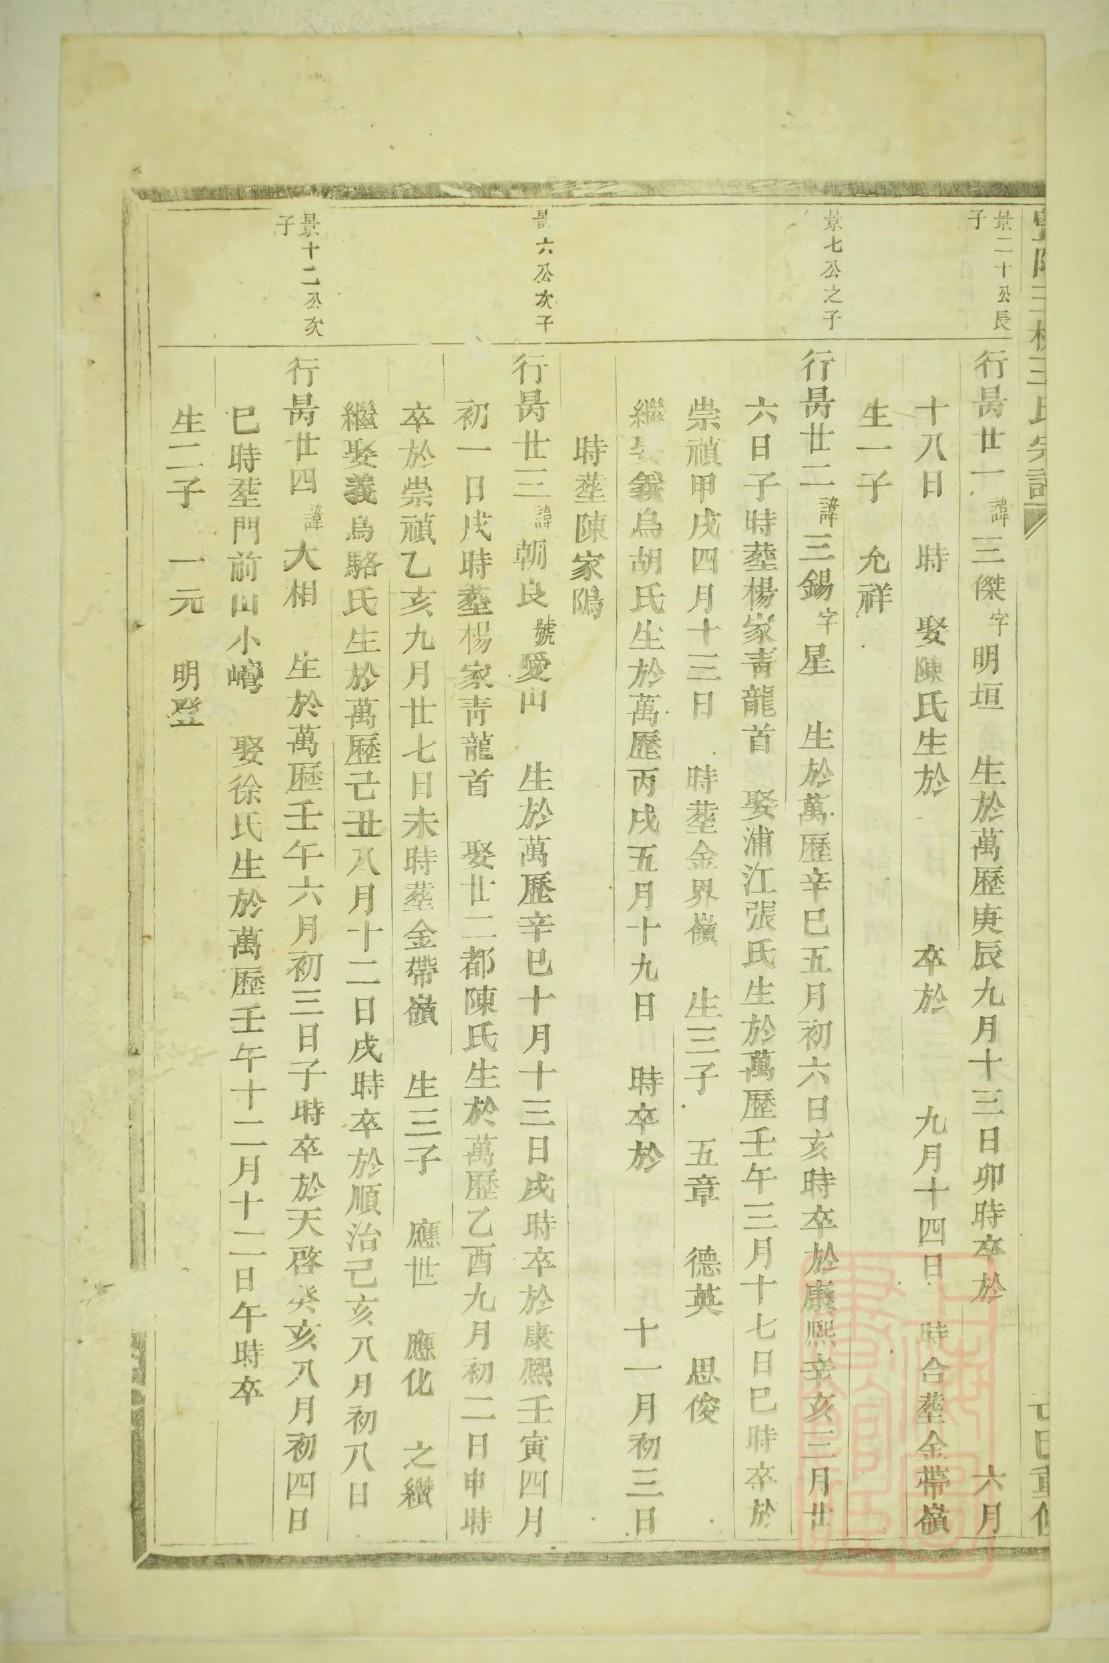 景二十公長
子
行昺廿一諱三傑字明垣 生於萬歷庚辰九月十三日卯時卒於 六月
十八日 時 娶陳氏生於 卒於 九月十四日 時合塟金帶嶺
生一子 允祥
景七公之子
行昺廿二諱三錫字星 生於萬歷辛巳五月初六日亥時卒於康熙辛亥三月廿
六日子時塟楊家靑龍首 娶浦江張氏生於萬歷壬午三月十七日巳時卒於
崇禎甲戌四月十三日 時塟金界嶺 生三子 五章 德英 思俊
繼娶義烏胡氏生於萬歷丙戌五月十九日 時卒於 十一月初三日
時塟陳家陽
景六公次子
行昺廿三諱朝良號愛山 生於萬歷辛巳十月十三日戌時卒於康熙壬寅四月
初一日戌時塟楊家靑龍首 娶廿二都陳氏生於萬歷乙酉九月初二日申時
卒於崇禎乙亥九月廿七日未時塟金帶嶺 生三子 應世 應化 之纘
繼娶義烏駱氏生於萬歷己丑八月十二日戌時卒於順治己亥八月初八日
景十二公次
子
行昺廿四諱大相 生於萬歷壬午六月初三日子時卒於天啓癸亥八月初四日
巳時塟門前山小嶹 娶徐氏生於萬歷壬午十二月十二日午時卒
生二子 一元 明登